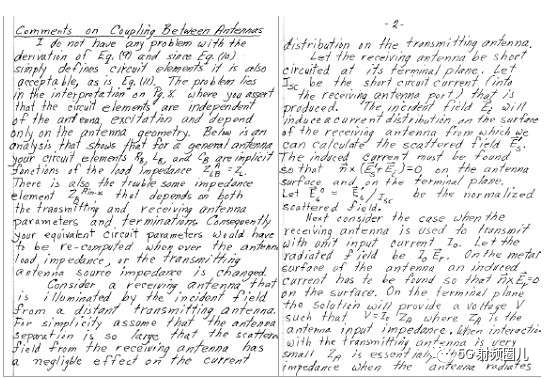 Comments on Coupling Between Antennas
I do not have any problem with the
derivation of Eq. (9) and since Eq. (10)
simply defines circuit elements it is also
acceptable, as is Eq. (11). The problem lies
in the interpretation on Pg. 8. where you assert
that the circuit elements are independent
of the antenna, excitation and depend
only on the antenna geometry. Below is an
analysis that shows that for a general antenna
your circuit elements and are implicit
functions of the load impedance
There is also the trouble some impedance
element that depends on both
the transmitting and receiving antenna
parameters and terminations. Consequently
your equivalent circuit parameters would have
to be re-computed when ever the antenna
load impedance, or the transmitting
antenna source impedance is changed.
Consider a receiving antenna that
is illuminated by the incident field
from a distant transmitting antenna.
For simplicity assume that the antenna
separation is so large that the scattered
field from the receiving antenna has
a negligble effect on the current
-2-
distribution on the transmitting antenna.
Let the receiving antenna be short
circuited at its terminal plane. Let
Isc be the short circuit current (into
the receiving antenna port) that is
produced. The incident field Ei will
induce a current distribution on the surface
of the receiving antenna from which we
can calculate the scattered field Es.
The induced current must be found
so that n×(Ei+Es)=0 on the antenna
surface and on the terminal plane.
Let = Es/Isc be the normalized
scattered field.
Next consider the case when the
receiving antenna is used to transmit
with input current Io. Let the
radiated field be Io Er. On the metal
surface of the antenna an induced
current has to be found so that n×Er=0
on the surface. On the terminal plane
the solution will provide a voltage V
such that V=Io ZA where ZA is the
antenna input impedance. When interaction
with the transmitting antenna is very
small ZA is essentially
impedance when the antenna radiates
5G射频圈儿